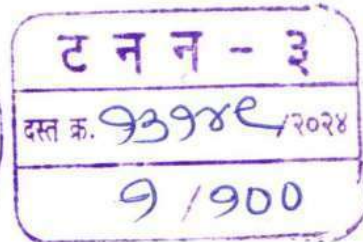 ट न न - ३
दस्त क्र. १३१४९/२०२४
१/१००